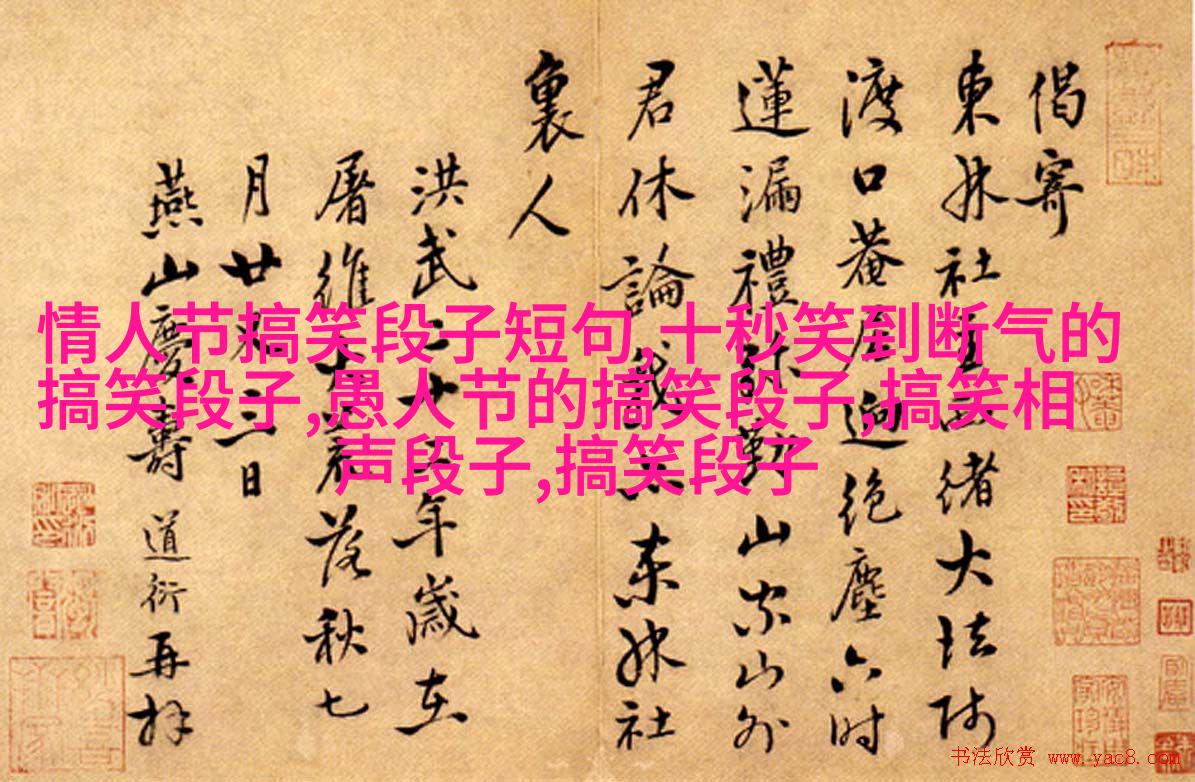 情人节搞笑段子短句,十秒笑到断气的
搞笑段子,愚人节的搞笑段子,搞笑相
声段子,搞笑段子
偈寄
東林社主西緒大法師
渡口菴居迥絕塵六時
蓮漏禮誦勤山家山外
君休論我東林社
裏人
洪武二十二年歲在
屠維大荒落秋七
月廿三日
燕山慶壽道衍再拜
书法欣赏 www.yac8.com